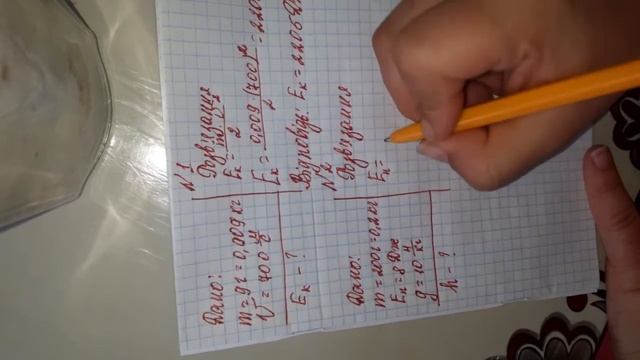 N 1
Дано:
m = 9 г = 0,009 кг
V = 700 м/с
Eк - ?
Розв'язання
Eк = mV²/2
Eк = 0,009 · (700)²/2 = 220
Відповідь: Eк = 2205 Дж
N 2
Дано:
m = 200 г = 0,2 кг
Eп = 8 Дж
g = 10 Н/кг
h - ?
Розв'язання
Eп =